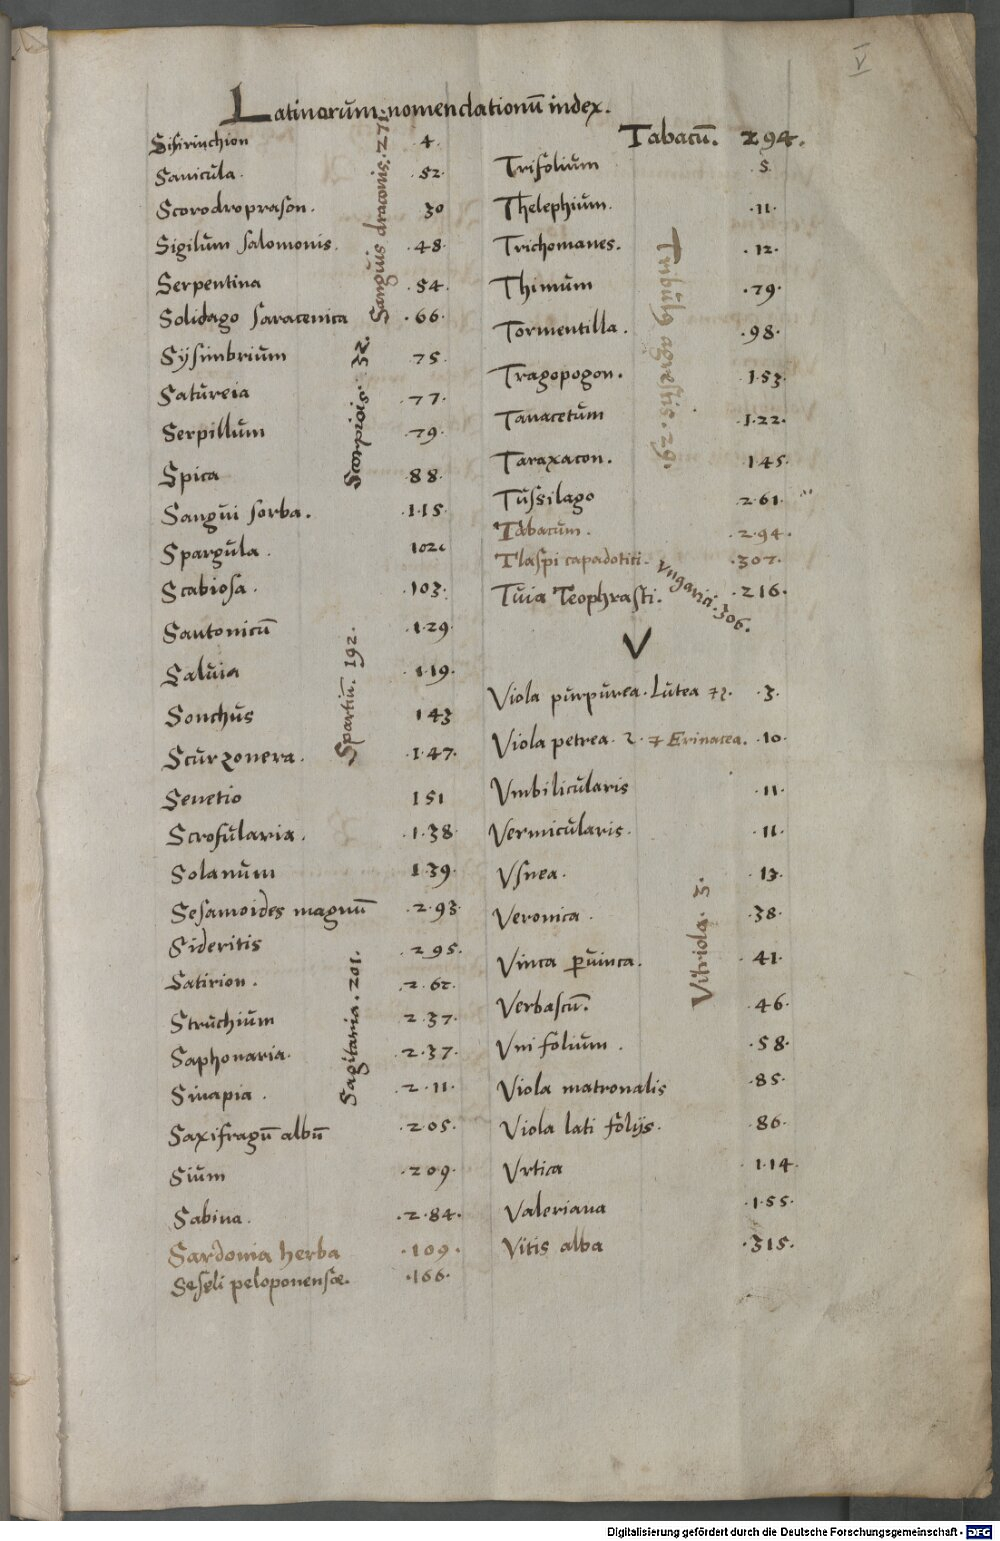 V
Latinorum nomenclationũ index.
Sisirinchion 4.
Sanicula. 52.
Scorodroprason. 30
Sigilum salomonis. 48.
Serpentina 54.
Solidago saracenica .66.
Sysimbrium 75.
Satureia 77.
Serpillum .79.
Spica 88.
Sangui sorba. .115.
Spargula. 102.
Scabiosa. .103.
Santonicũ .129.
Saluia .119.
Sonchus 143
Scurzonera. .147.
Senetio 151
Scrofularia. .138.
Solanum 139.
Sesamoides magnũ .293.
Sideritis .295.
Satirion. .262.
Struthium 237.
Saphonaria. 237.
Sinapia. .211.
Saxifragũ albũ .205.
Sium .209.
Sabina. .284.
Sardonia herba .109.
Seseli peloponensæ. .166.
Sanguis draconis. 271.
Scorpiois. 32.
Spartiũ. 192.
Sagitaria. 201.
Tabacũ. 294.
Trifolium 5
Thelephium. .11.
Trichomanes. .12.
Thimum .79.
Tormentilla. .98.
Tragopogon. .153.
Tanacetum .122.
Taraxacon. .145.
Tussilago 261.
Tabacum. .294.
Tlaspi capadotiti. .307.
vngarici. 306.
Tuia Teophrasti. .216.
Tribulus agrestis. 29.
V
Viola purpurea. Lutea 72. .3.
Viola petrea. 2. 7 Erinacea. .10.
Vmbilicularis .11.
Vermicularis. .11.
Vsnea. .13.
Veronica. .38.
Vinca puinca. .41.
Verbascũ. .46.
Vnifolium. .58.
Viola matronalis .85.
Viola lati folijs. .86.
Vrtica .114.
Valeriana .155.
Vitis alba .315.
Vitriola. 3.
Digitalisierung gefördert durch die Deutsche Forschungsgemeinschaft - DFG